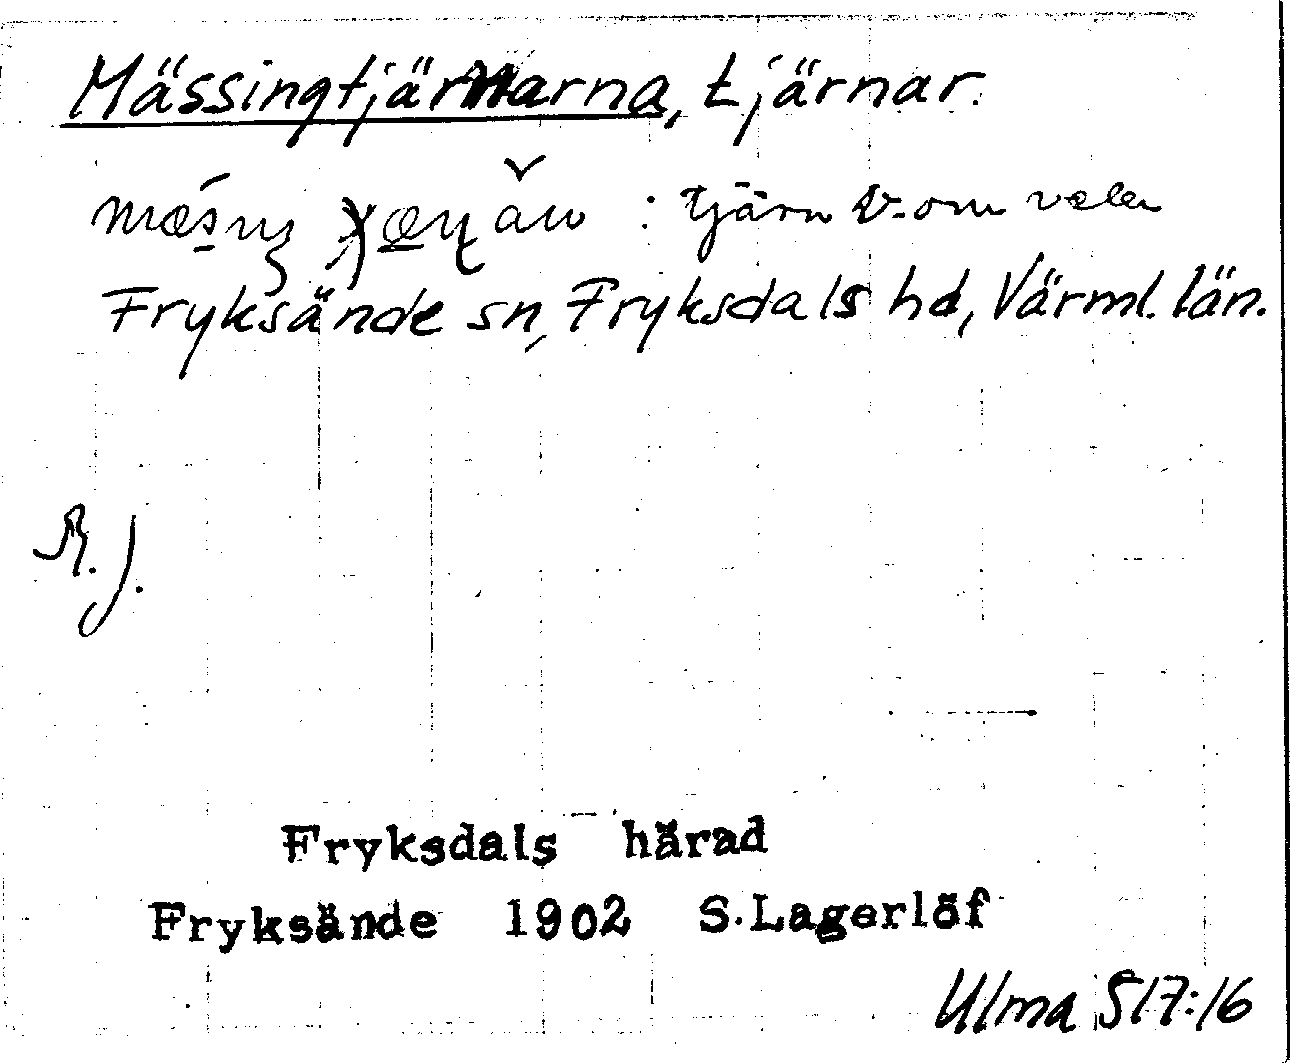 Mässingtjärnarna, tjärnar.
: tjärn V. om
Fryksände sn, Fryksdals hd, Värml. län.
R. J.
Fryksdals härad
Fryksände 1902 S.Lagerlöf
Ulma 517:16